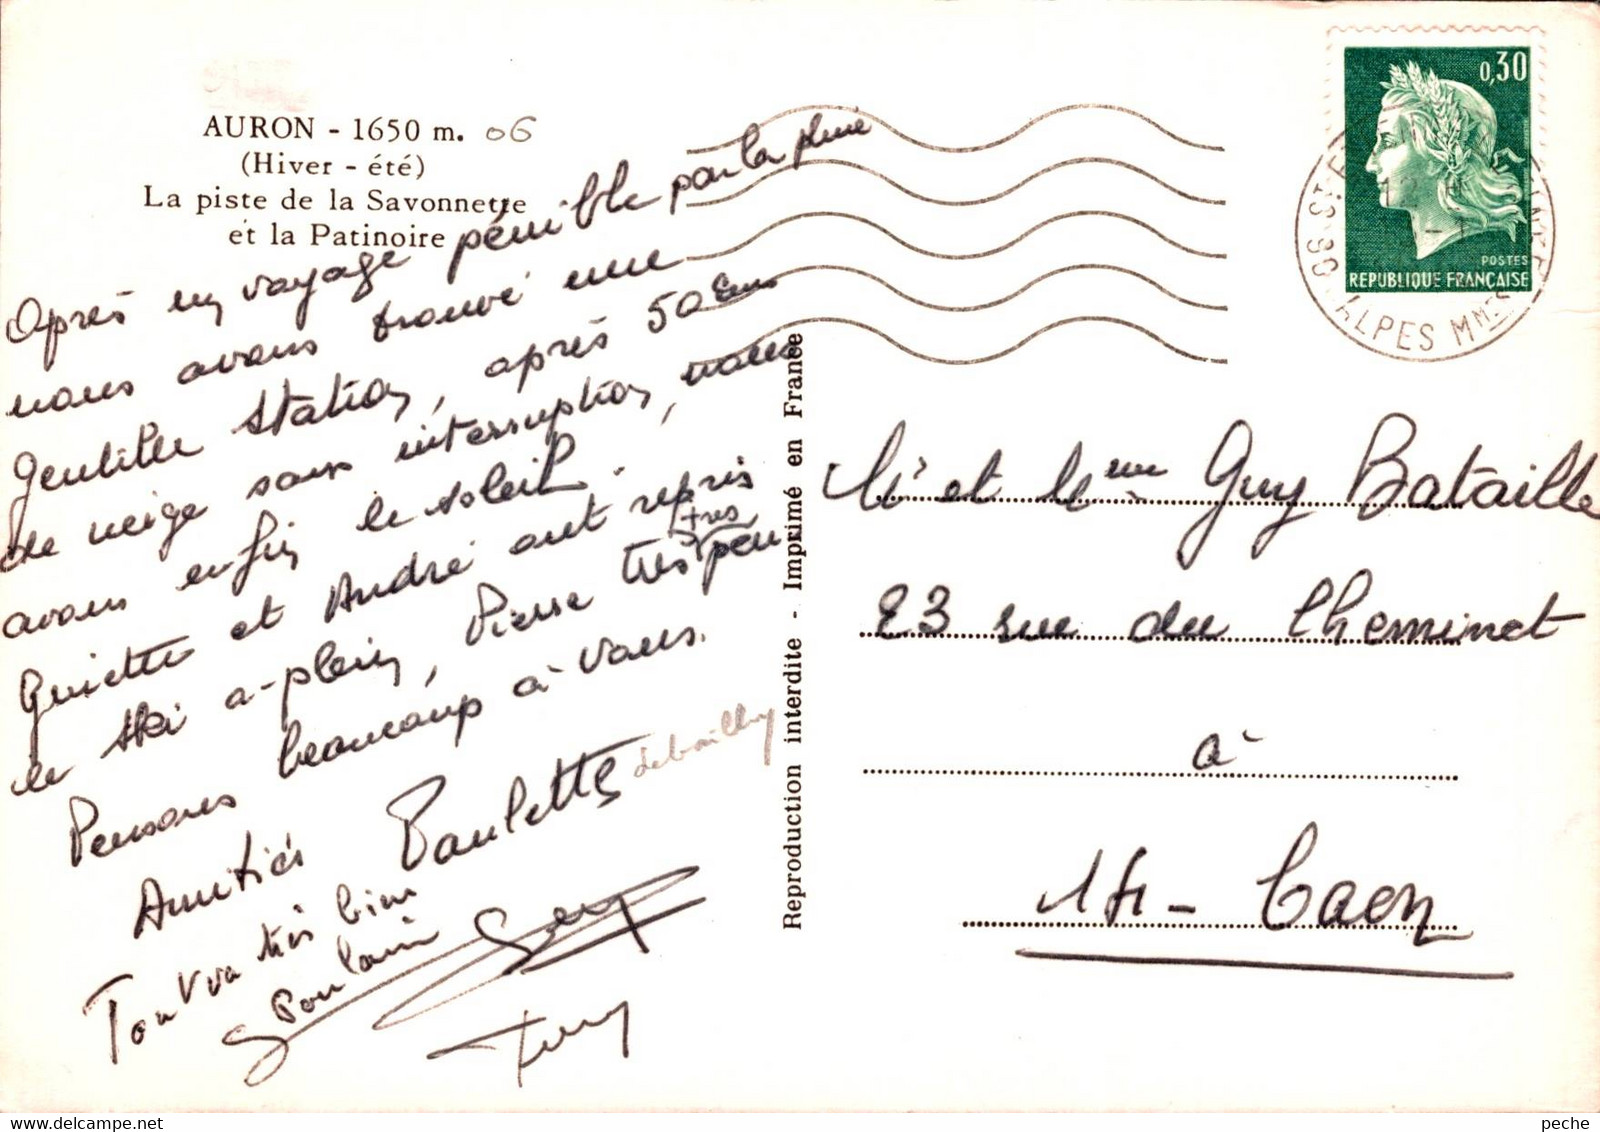 AURON - 1650 m. 06
(Hiver - été)
La piste de la Savonnette
et la Patinoire
Après un voyage pénible par la pluie
nous avons trouvé une
gentille station, après 50 cms
de neige sans interruption, nous
avons enfin le soleil.
Guiette et André ont repris
le ski a-plein, Pierre très très peu
Pensons beaucoup à vous.
Amitiés Paulette debailly
Tout va très bien
G Poulain
Reproduction interdite - Imprimé en France
0,30
POSTES
REPUBLIQUE FRANÇAISE
06 ALPES MMES
Mr et Mme Guy Bataille
23 rue du Cheminet
à
14 - Caen
peche